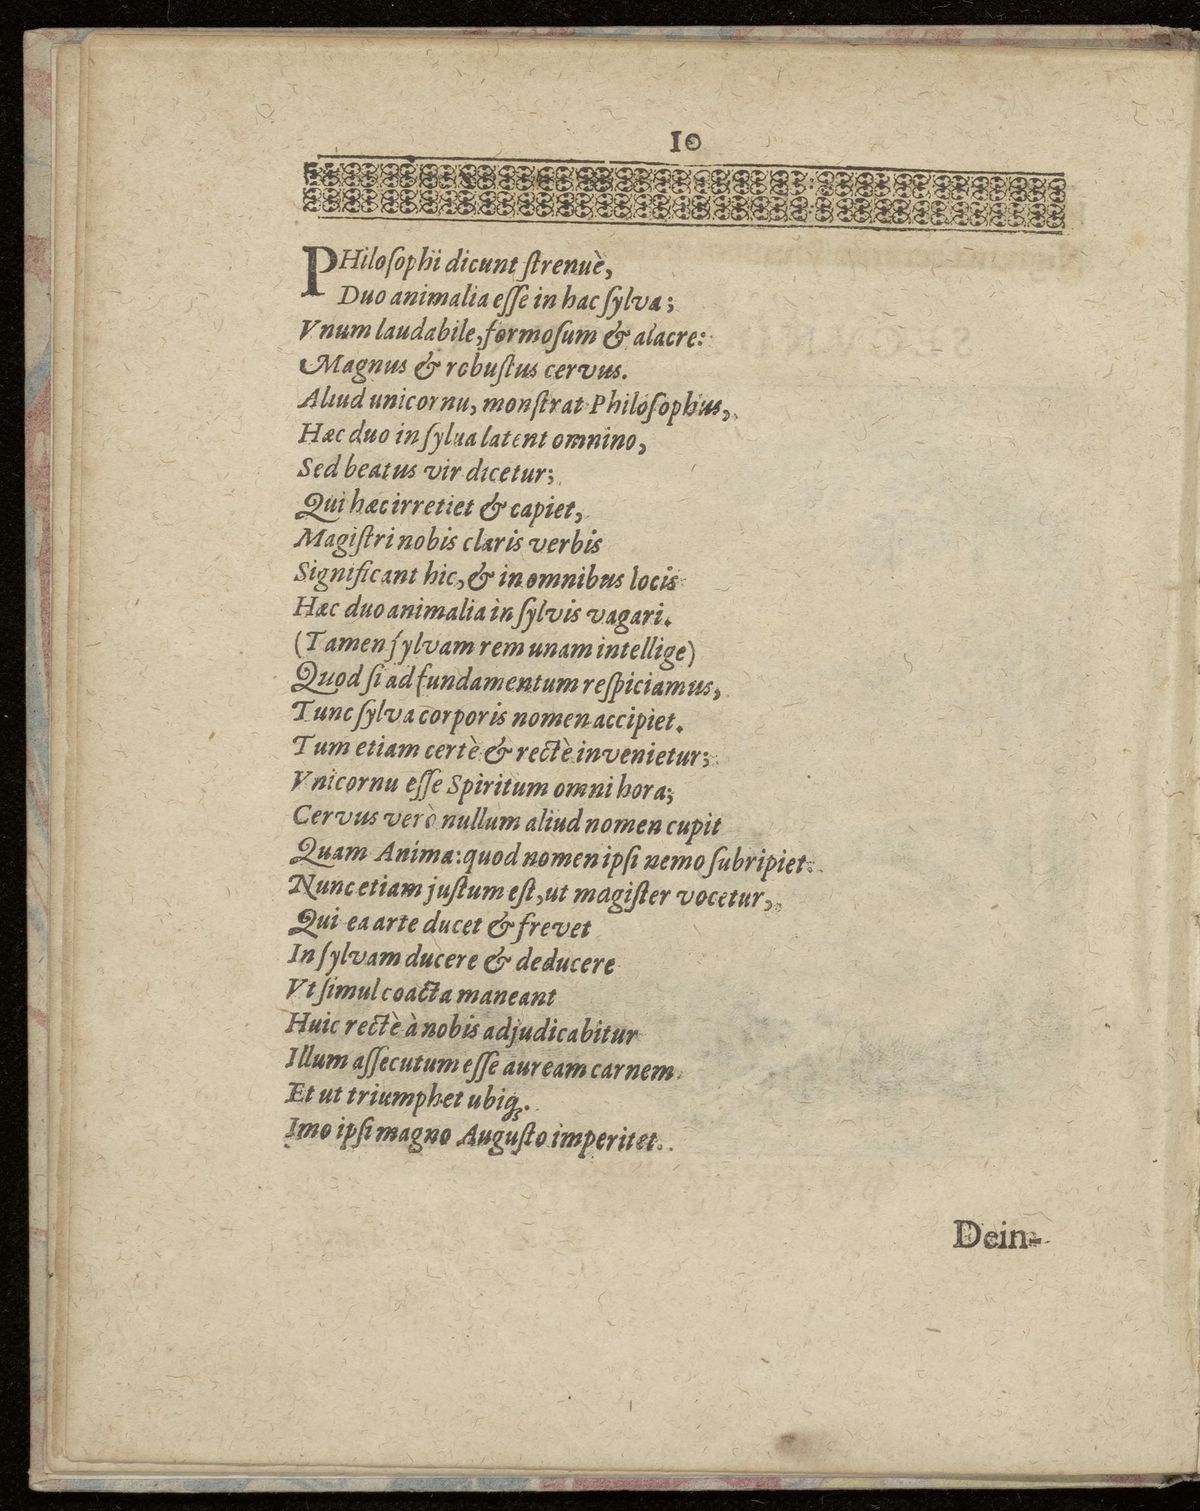 10
PHiloſophi dicunt ſtrenuè,
Duo animalia eſſe in hac ſylva;
Vnum laudabile, formoſum & alacre:
Magnus & robuſtus cervus.
Aliud unicornu, monſtrat Philoſophus,
Hæc duo in ſylua latent omnino,
Sed beatus vir dicetur;
Qui hæc irretiet & capiet,
Magiſtri nobis claris verbis
Significant hic, & in omnibus locis
Hæc duo animalia in ſylvis vagari.
(Tamen ſylvam rem unam intellige)
Quod ſi ad fundamentum reſpiciamus,
Tunc ſylva corporis nomen accipiet.
Tum etiam certè & rectè invenietur;
Vnicornu eſſe Spiritum omni hora;
Cervus verò nullum aliud nomen cupit
Quam Anima: quod nomen ipſi nemo ſubripiet.
Nunc etiam juſtum eſt, ut magiſter vocetur,
Qui ea arte ducet & frevet
In ſylvam ducere & deducere
Vt ſimul coacta maneant
Huic rectè à nobis adjudicabitur
Illum aſſecutum eſſe auream carnem.
Et ut triumphet ubiq;.
Imo ipſi magno Auguſto imperitet.
Dein-